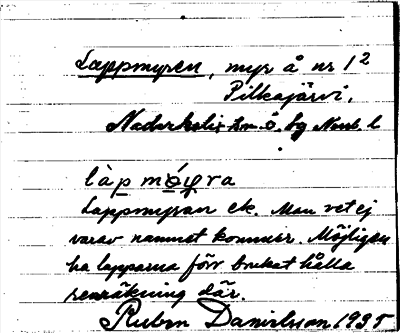 Lappmyren, myr å nr 1²
Pilkajärvi,
Nederkalix sn. ö. bg Norrb. l
làp móyra
Lappmyran ek. Man vet ej
varav namnet kommer. Möjligen
ha lapparna förr brukat hålla
renräkning där.
Ruben Danielsson 1935